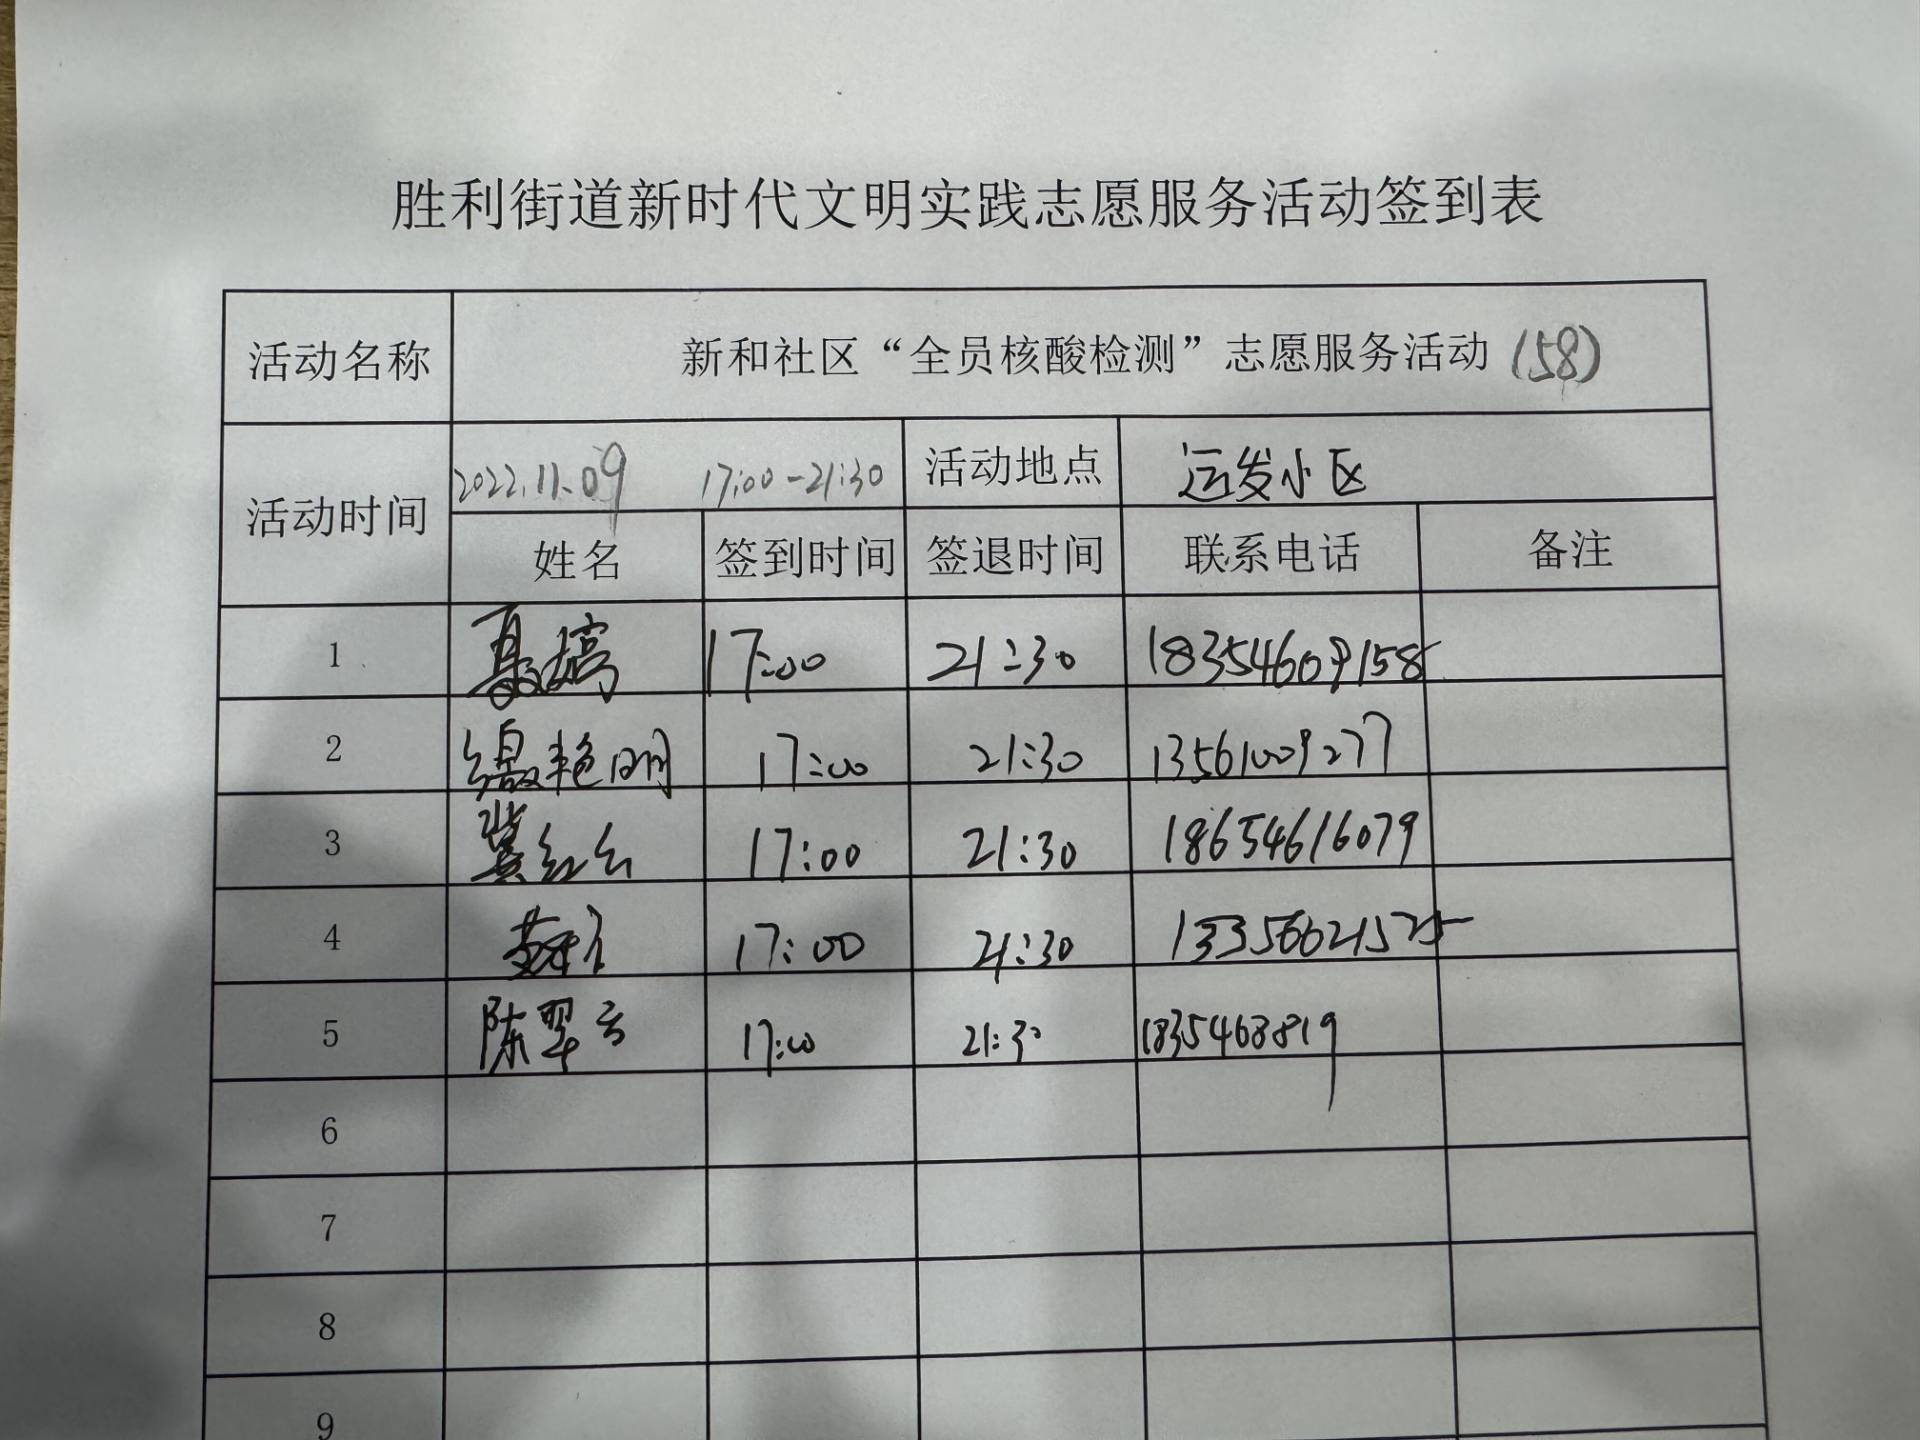 胜利街道新时代文明实践志愿服务活动签到表
活动名称 新和社区“全员核酸检测”志愿服务活动 (58)
活动时间 2022.11.09 17:00-21:30 活动地点 运发小区
姓名 签到时间 签退时间 联系电话 备注
1 17:00 21:30 18354609158
2 缑艳明 17:00 21:30 13561009277
3 冀红云 17:00 21:30 18654616079
4 17:00 21:30 13356621525
5 陈翠云 17:00 21:30 1835468819
6
7
8
9